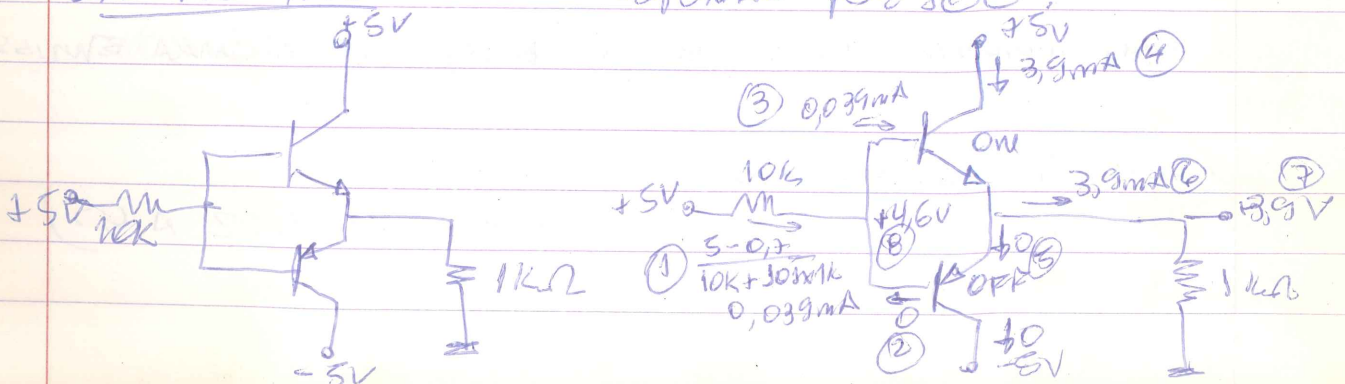 +5V
+5V
10K
1KΩ
-5V
+5V
3,9mA ④
③ 0,039mA
ON
10k
+5V
3,9mA ⑥
⑦
3,9V
+4,6V
⑧
① 5-0,7
10k+101x1k
0,039mA
0 ⑤
OFF
0
②
0
-5V
1kΩ